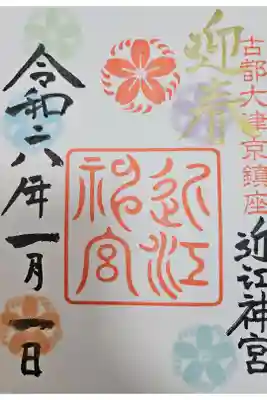 古都大津京鎮座
迎春
近江神宮
近江
神宮
令和六年一月一日